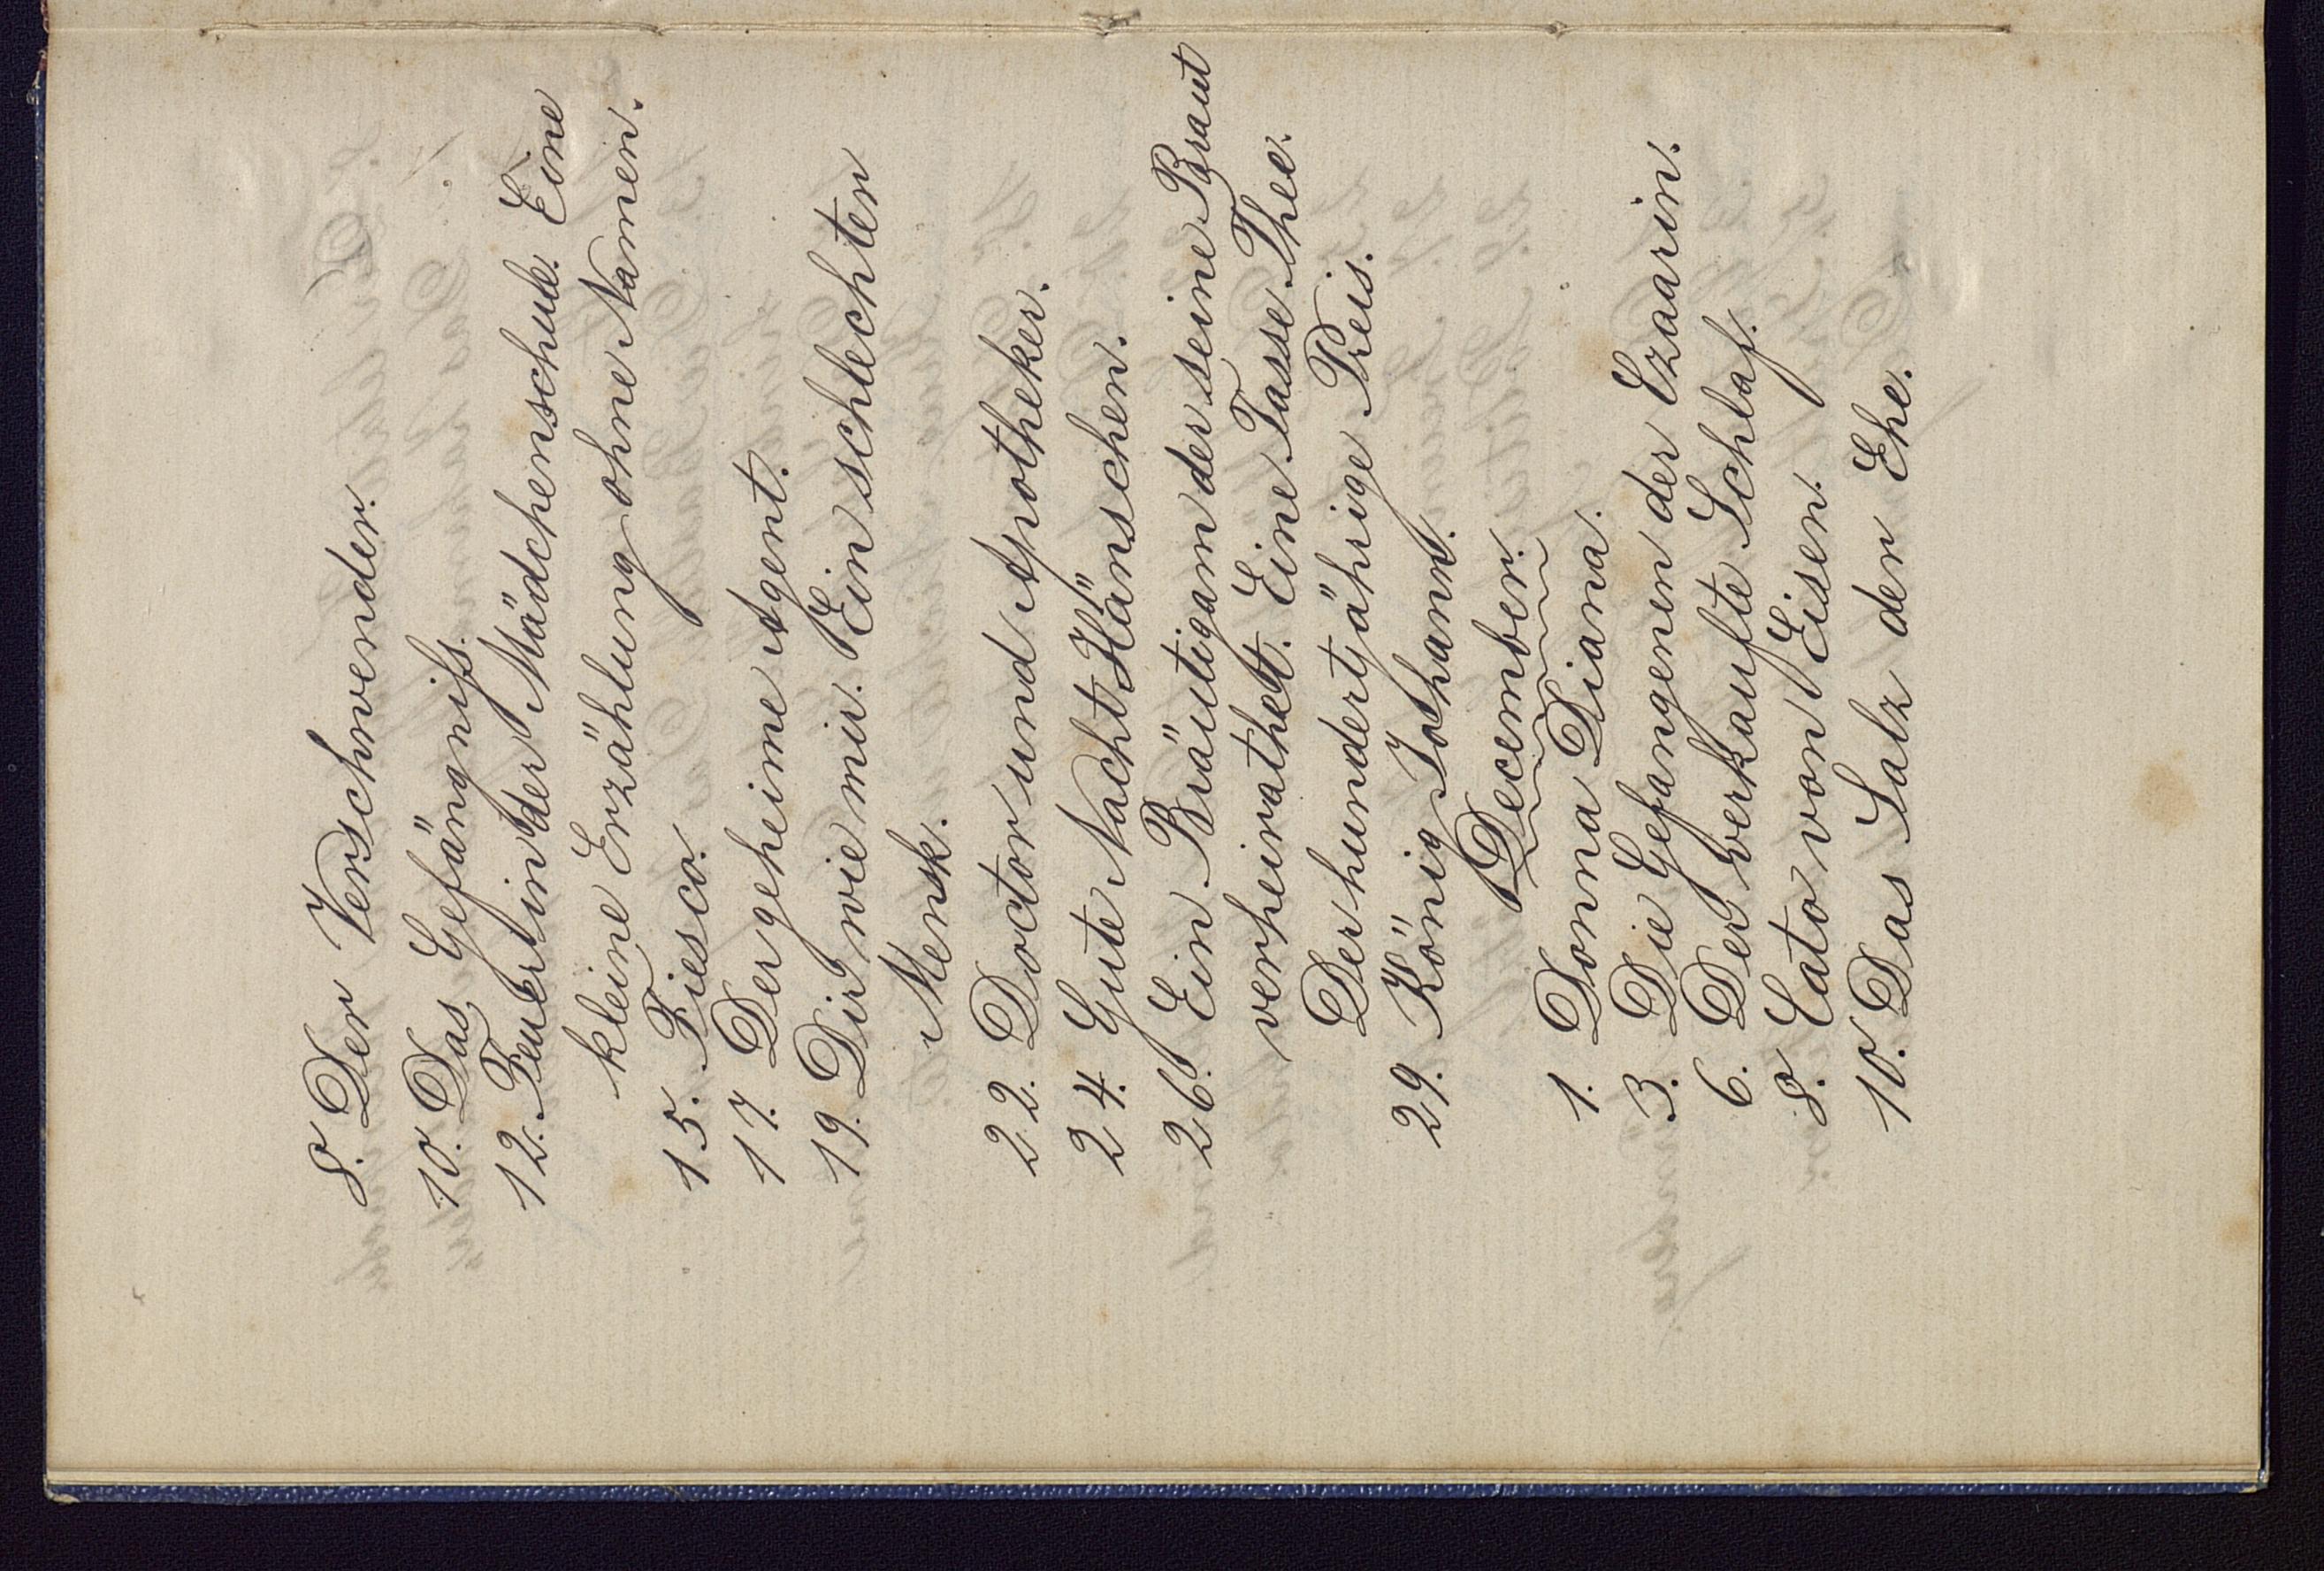 8. Der Verschwender.
10. Das Gefängniß.
12. Feuer in der Mädchenschule. Eine
kleine Erzählung ohne Namen.
15. Fiesco.
17. Der geheime Agent.
19. Dir wie mir. Ein schlechter
Mensk.
22. Doctor und Apotheker.
24. Gute Nacht Hänschen.
26. Ein Bräutigam der seine Braut
verheirathet. Eine Tasse Thee.
Der hundertjährige Preis.
29. König Johann.
December.
1. Donna Diana.
3. Die Gefangenen der Czaarin.
6. Der verkaufte Schlaf.
8. Cato von Eisen.
10. Das Salz der Ehe.